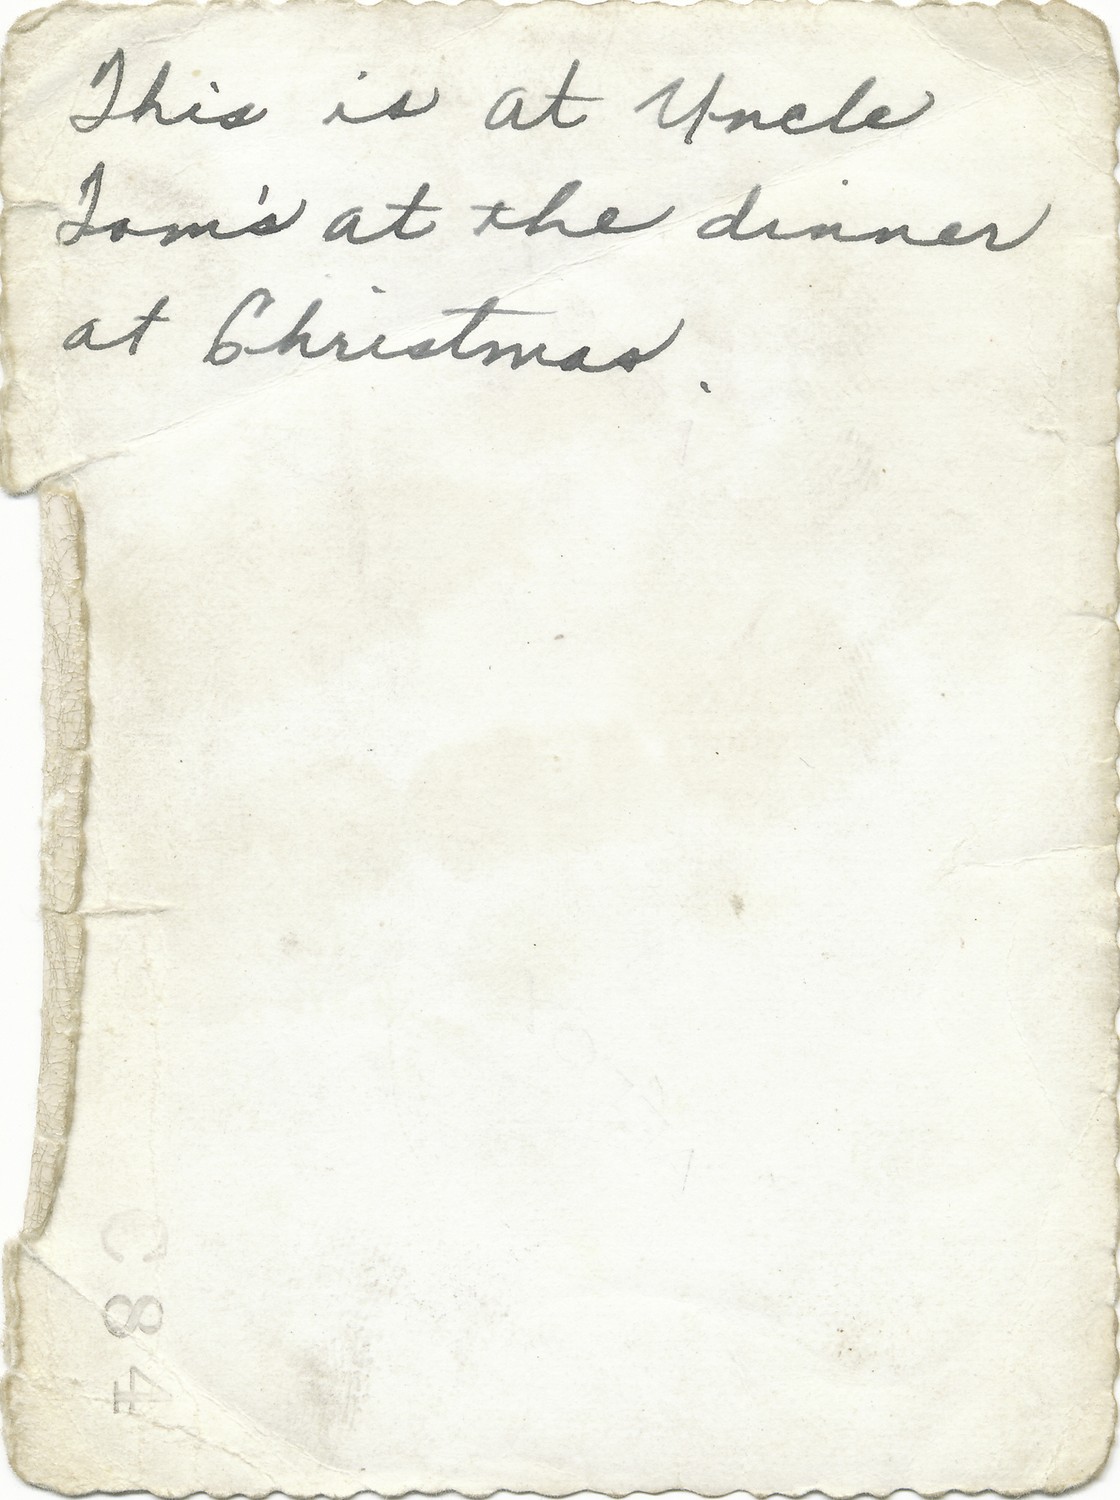 This is at Uncle
Tom's at the dinner
at Christmas.
C84